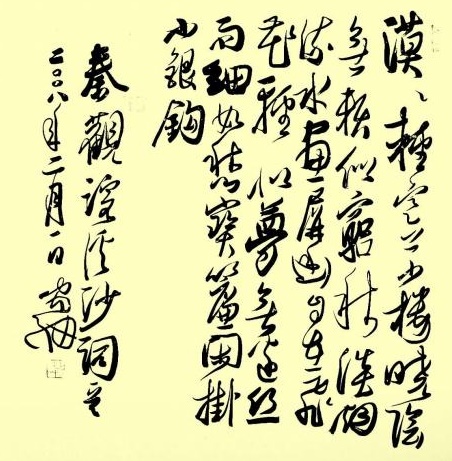 漠〻輕寒上小樓曉陰
無賴似窮秋淡烟
流水畫屏幽自在飛
花輕似夢無邊絲
雨細如愁寶簾閑掛
小銀鉤
秦觀浣溪沙詞
二〇〇八年二月一日